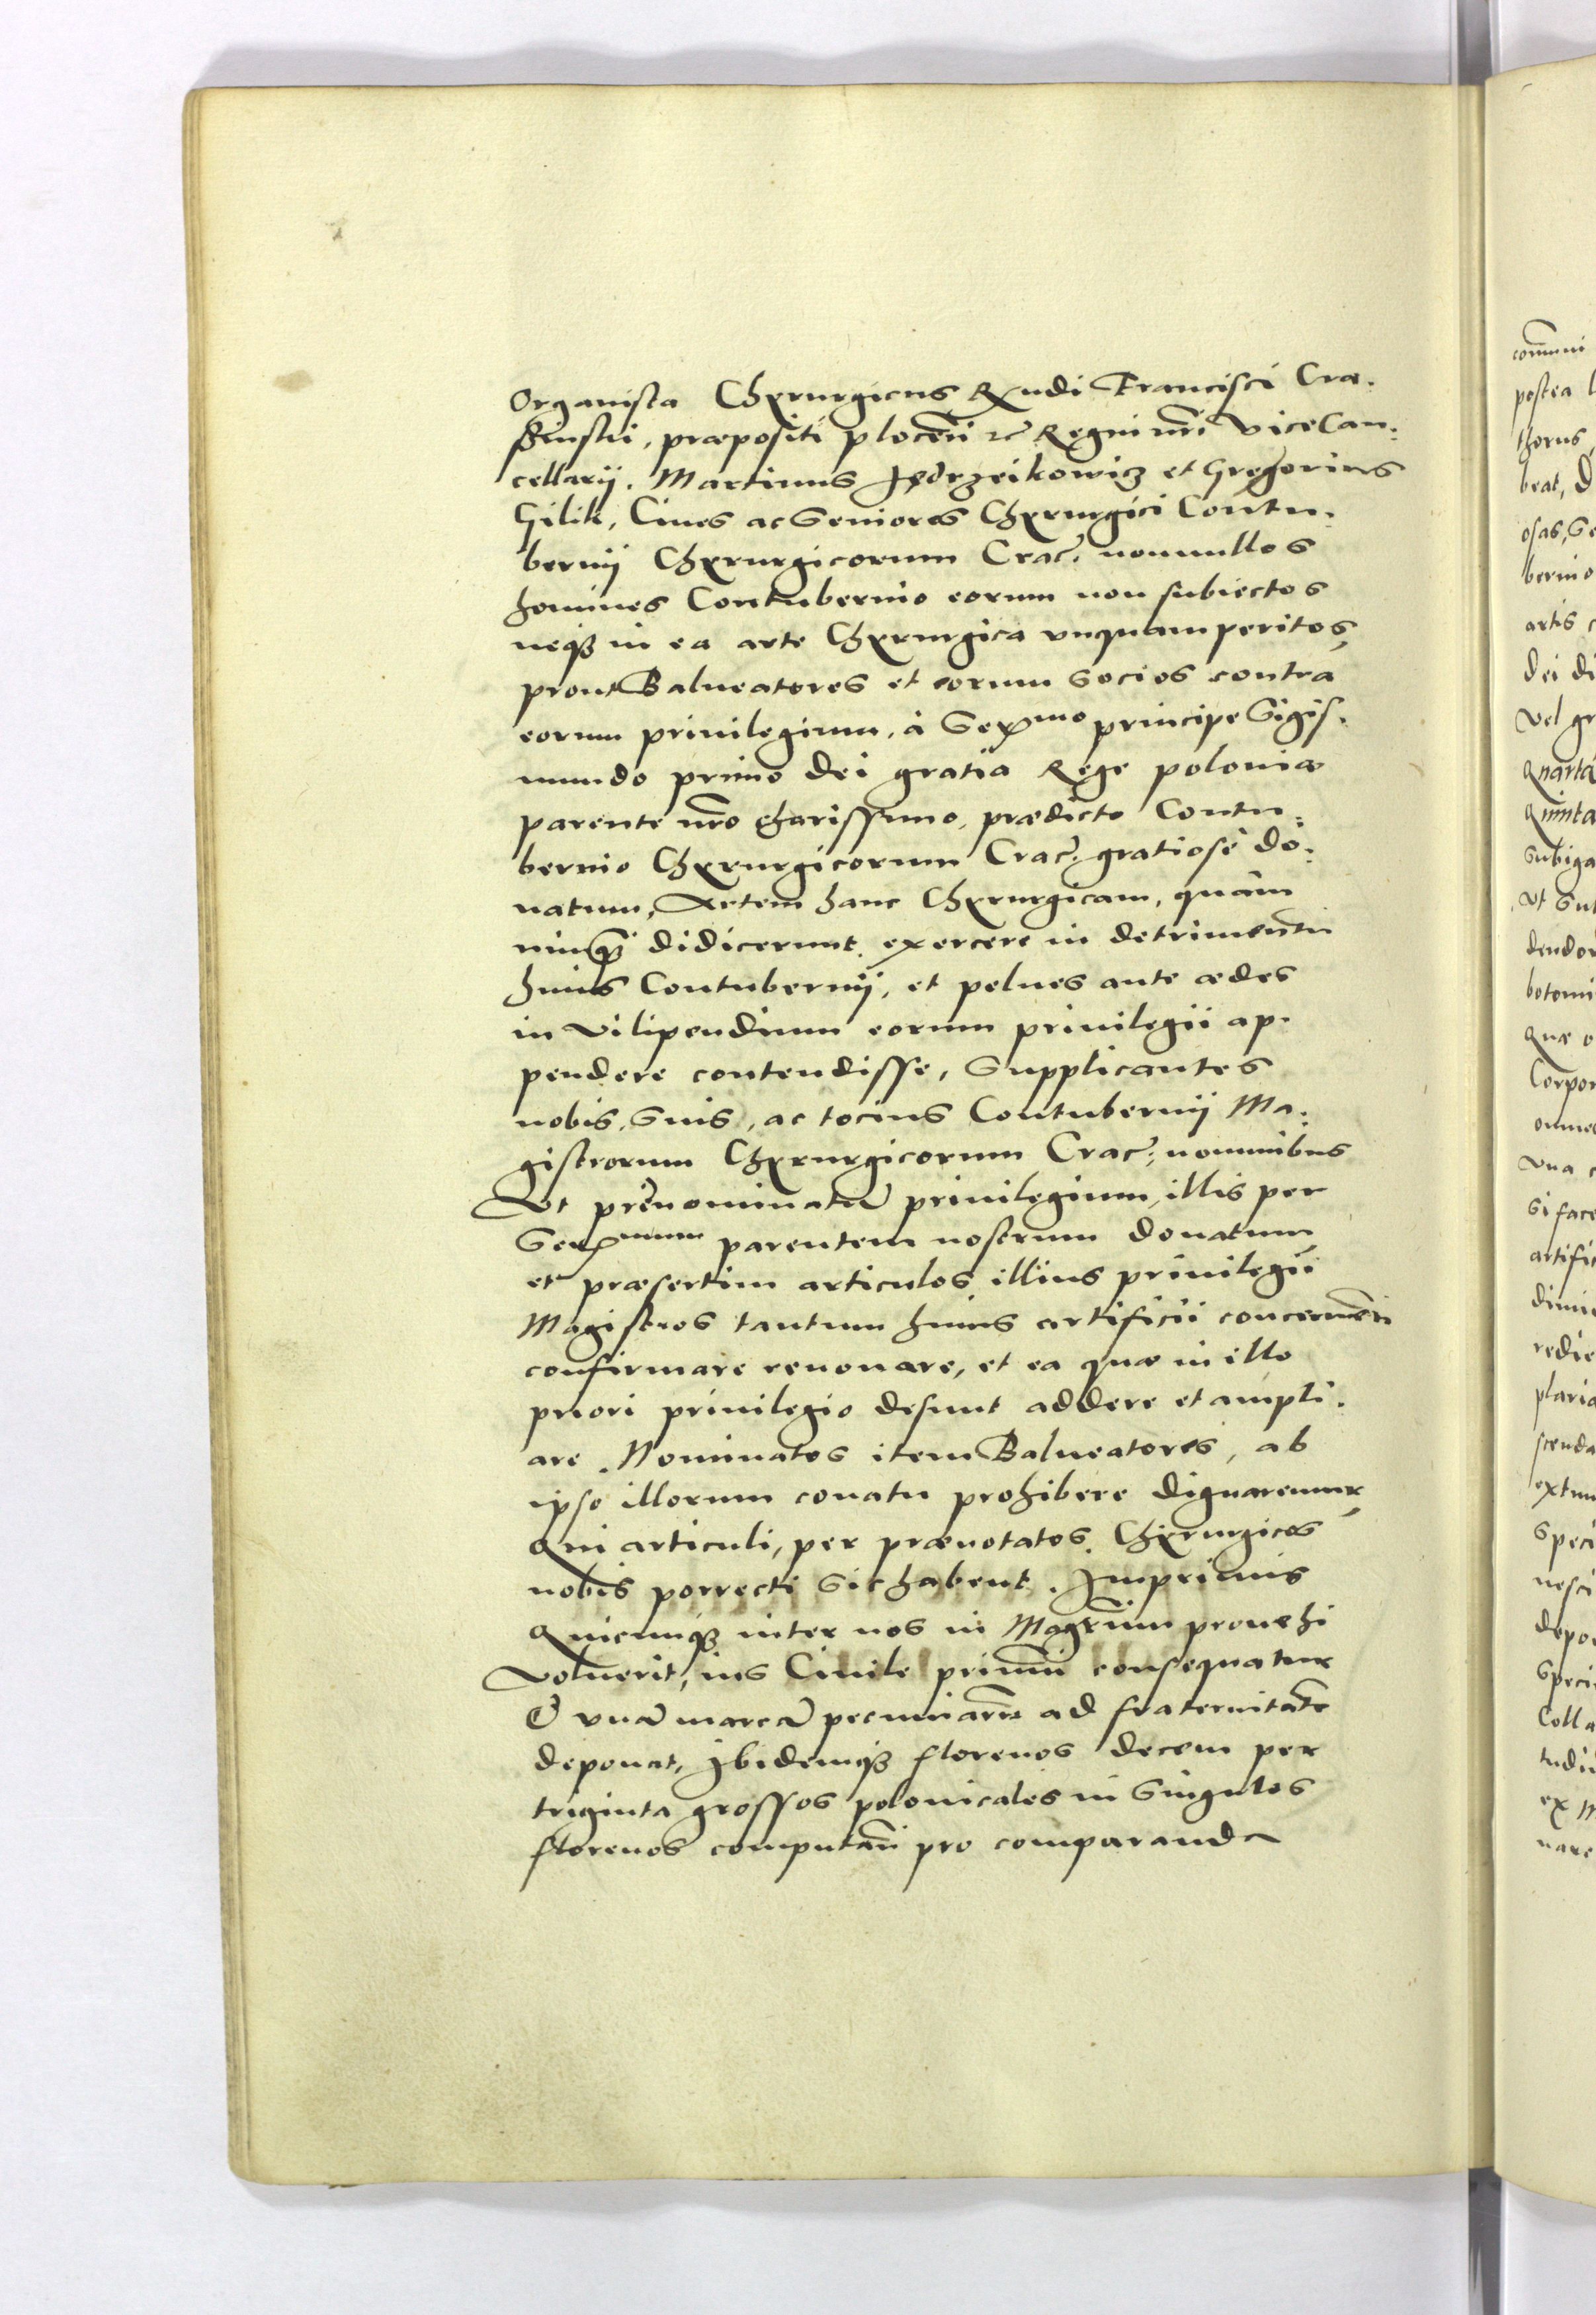 Organista Chyrurgicus Rndi Francisci Cra.
sinskii, præpositi plocen̄ &c Regni nr̄i ViceCan.
cellarij. Martinus Jędrzeikowicz et Gregorius
Gilik, Ciues ac Seniores Chyrurgici Contu.
bernij Chyrurgicorum Crac. nonnullos
homines Contubernio eorum non subiectos
neq3 in ea arte Chyrurgica vnquam peritos,
prout Balneatores et eorum socios contra
eorum priuilegium, à Sermo principe Sigis.
mundo primo dei gratia Rege poloniæ
parente nr̄o charissimo, prædicto Contu:
bernio Chyrurgicorum Crac. gratiosè do:
natum, Artem hanc Chyrurgicam, quam
nunq̄ didicerunt exercere in detrimentū
huius Contubernij, et pelues ante ædes
in vilipendium eorum priuilegii ap.
pendere contendisse, Supplicantes
nobis, Suis, ac tocius Contubernij Ma.
gistrorum Chyrurgicorum Crac: nominibus
Vt prenominatū priuilegium, illis per
Sermum parentem nostrum donatum,
et præsertim articulos illius priuilegii
Magistros tantum huius artificii concernen̄
confirmare renouare, et ea quæ in illo
priori priuilegio desunt addere et ampli.
are. Nominatos item Balneatores, ab
ipso illorum conatu prohibere dignaremur,
Qui articuli, per prænotatos Chyrurgicos
nobis porrecti Sic habent. Imprimis
Quicunq3 inter nos in Magr̄ium prouehi
Voluerit, ius Ciuile primū consequatur
Et vnā marcā pecuniarū ad fraternitatē
deponat, Ibidemq3 florenos decem per
triginta grossos polonicales in Singulos
florenos computan̄ pro comparanda
com̄uni
postea
thorus,
beat,
osas,
bernio
artis
dei di
vel gr
Quarta
Quinta
Subiga
Vt Sul
dendor
botomi
Quæ
Corpor
omne
vna
Si face
artific
dimi
redie
plaria
scenda
extun
Speci
nesci
depo
Speci
Colla
tudi
ex M
nare